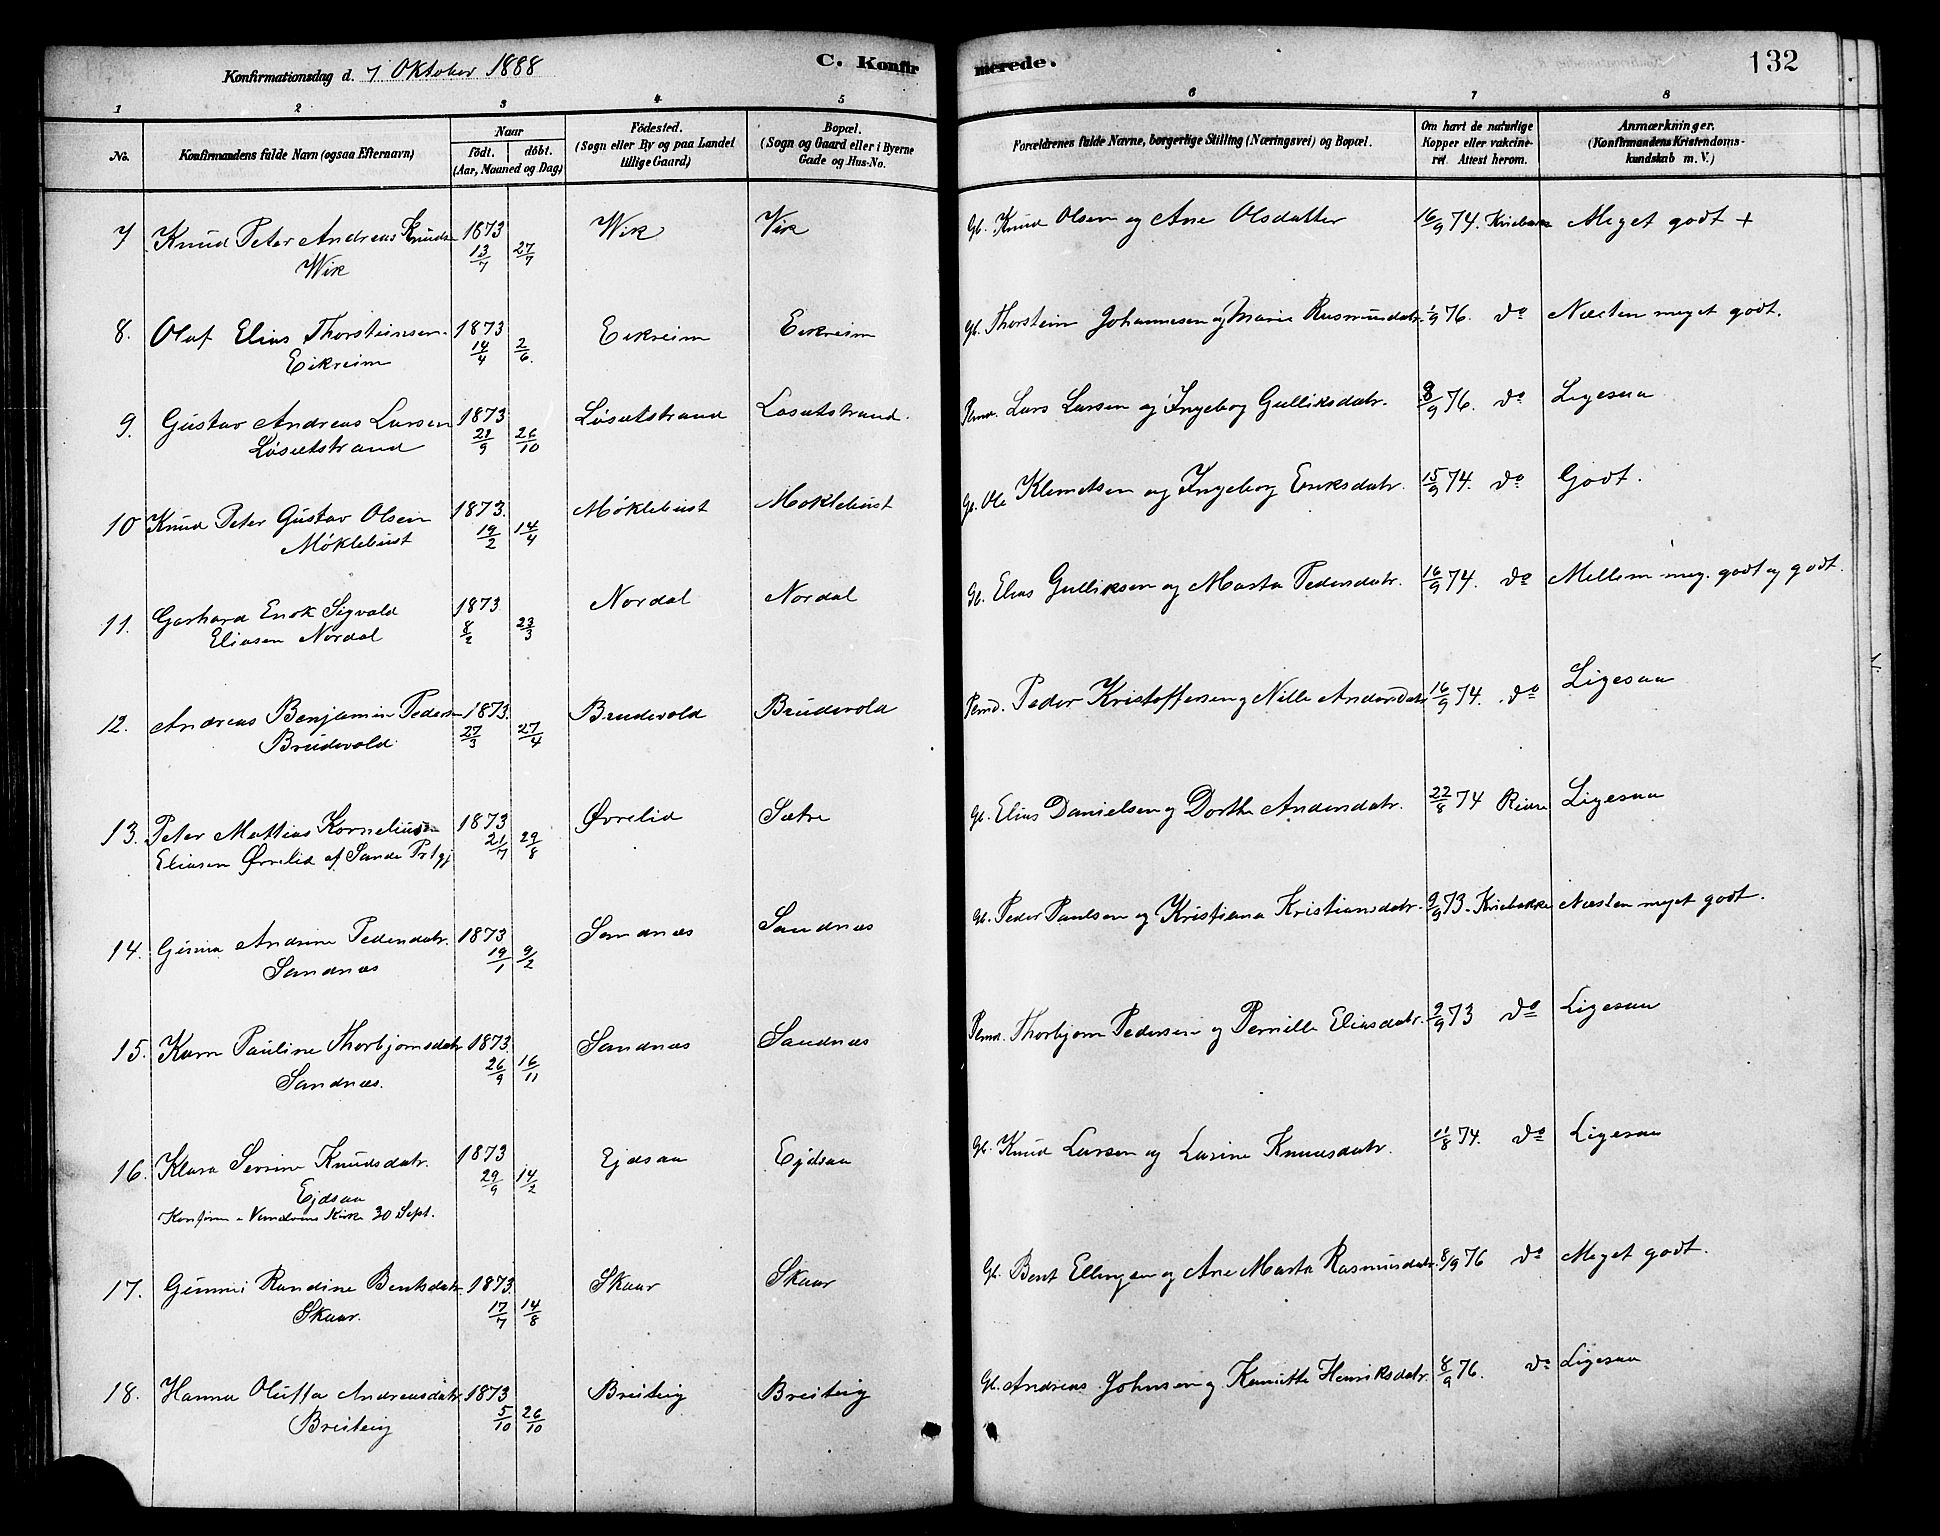 Konfirmationsdag d. 7 Oktober 1888
C. Konfirmerede.
132
1 2 3 4 5 6 7 8
No.
Konfirmandens fulde Navn (ogsaa Efternavn)
Naar
födt. döbt.
(Aar, Maaned og Dag)
Födested.
(Sogn eller By og paa Landet
tillige Gaard)
Bopæl.
(Sogn og Gaard eller i Byerne
Gade og Hus-No.
Forældrenes fulde Navne, borgerlige Stilling (Næringsvei) og Bopæl.
Om havt de naturlige
Kopper eller vakcine-
ret Attest herom.
Anmærkninger.
(Konfirmandens Kristendoms-
kundskab m. V.)
7 Knud Peter Andreas Knuds 1873 Wik Vik Gb. Knud Olsen og Ane Olsdatter 16/9 74. Meget godt +
Wik 13/7 27/7
8. Oluf Elias Thorsteinsen 1873 Eikreim Eikreim Gb. Thorstein Johannesen og Marie Rasmusdatr. 1/9 76. do Næsten meget godt.
Eikreim 14/4 2/6.
9. Gustav Andreas Larsen 1873 Løsetstrand Løsetstrand. Pmd. Lars Larsen og Ingeborg Gulliksdatr. 9/9 76. do Ligesaa
Løsetstrand 21/9 26/10
10 Knud Peter Gustav Olsen 1873. Møklebust Møklebust Gb. Ole Klemetsen og Ingeborg Eriksdatr. 15/9 74. do Godt.
Møklebust 19/2 14/4
11. Gerhard Enok Sigvald 1873. Nordal Nordal Gb. Elias Gulliksen og Marta Pedersdatr. 16/9 74. do Mellem meg. godt og godt.
Eliasen Nordal 8/2 23/3
12. Andreas Benjamin Peders 1873. Brudevold Brudevold Pmd. Peder Kristoffersen og Nille Andersdatr 16/9 74. do Ligesaa
Brudevold 27/3 27/4
13. Peter Mattias Kornelius 1873 Øvrelid Sætre Gb. Elias Danielsen og Dorthe Andersdatr. 22/8 74 Ligesaa
Eliasen Øvrelid af Sande Prtgj 21/7 29/8
14. Gurina Andrine Pedersdatr. 1873 Sandnæs Sandnæs Gb. Peder Paulsen og Kristiana Kristiansdatr. 9/9 73. Næsten meget godt.
Sandnæs 19/1 9/2
15. Karn Pauline Thorbjørnsdatr 1873. Sandnæs Sandnæs Pmd. Thorbjørn Pedersen og Pernille Eliasdatr. 9/9 73 do Ligesaa
Sandnæs. 26/9 16/11
16. Klara Serine Knudsdatr. 1873 Ejdsaa Ejdsaa Gb. Knud Larsen og Larine Knudsdatr. 11/8 74. do Ligesaa
Ejdsaa 29/9 14/2
Kirke 30 Sept.
17. Randine Bentsdatr 1873. Skaar Skaar Gb. Bent Ellingsen og Ane Marta Rasmusdatr. 8/9 76 do Meget godt.
Skaar. 17/7 14/8
18. Hanna Oluffa Andreasdatr 1873 Breiteig Breiteig Gb. Andreas Johnsen og Henriksdatr. 8/9 76. do Ligesaa
Breiteig 5/10 26/10